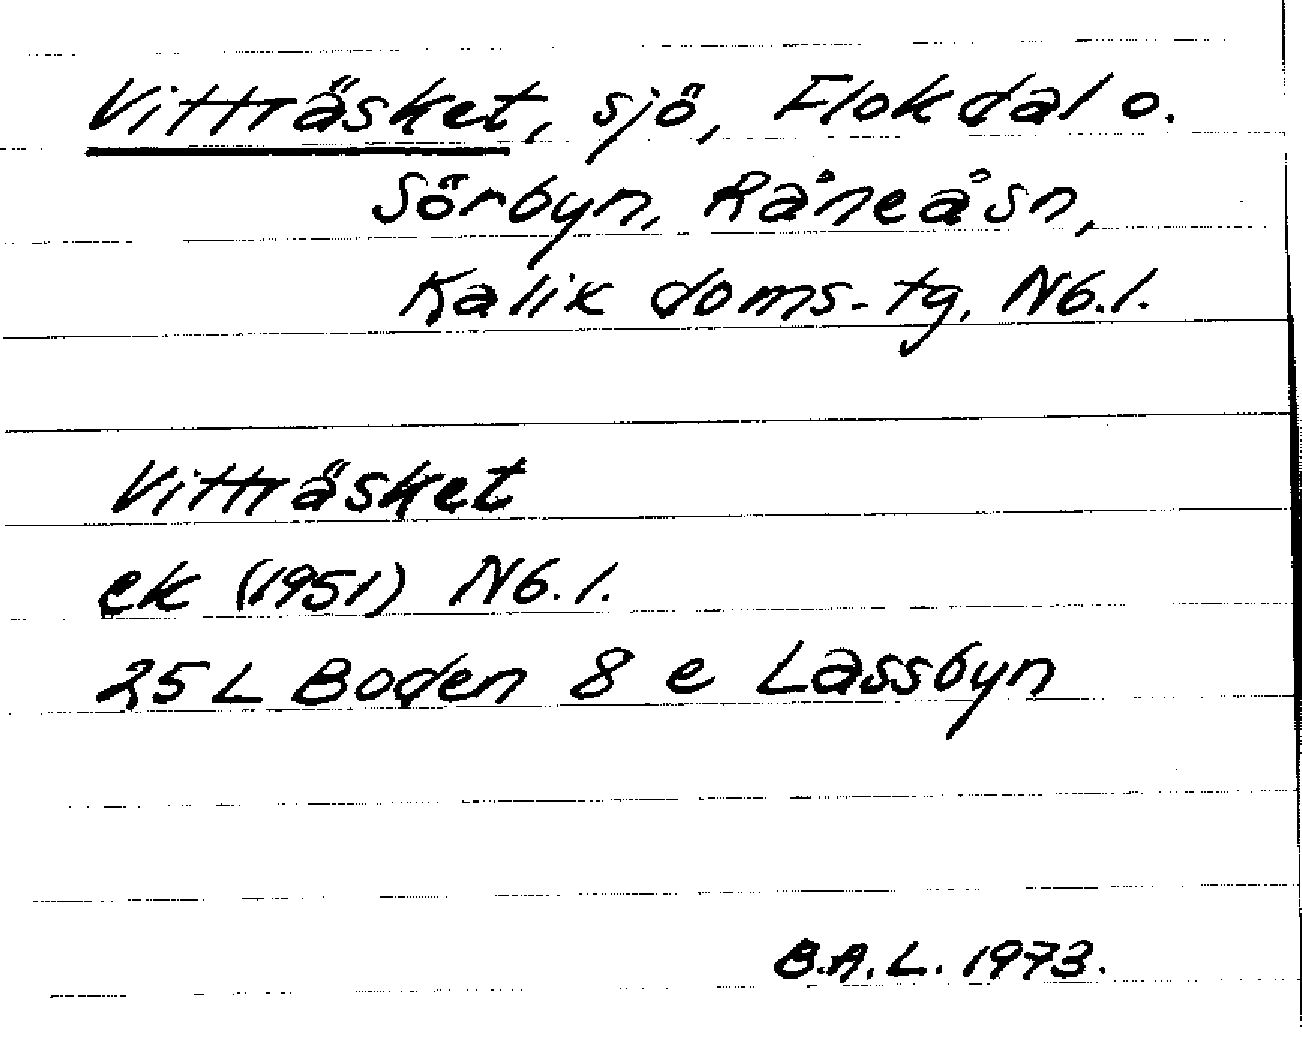 Vitträsket, sjö, Flokdal o.
Sörbyn, Råneå sn,
Kalix doms.-tg, Nb.l.
Vitträsket
ek (1951) Nb.l.
25 L Boden 8 e Lassbyn
B.A.L. 1973.